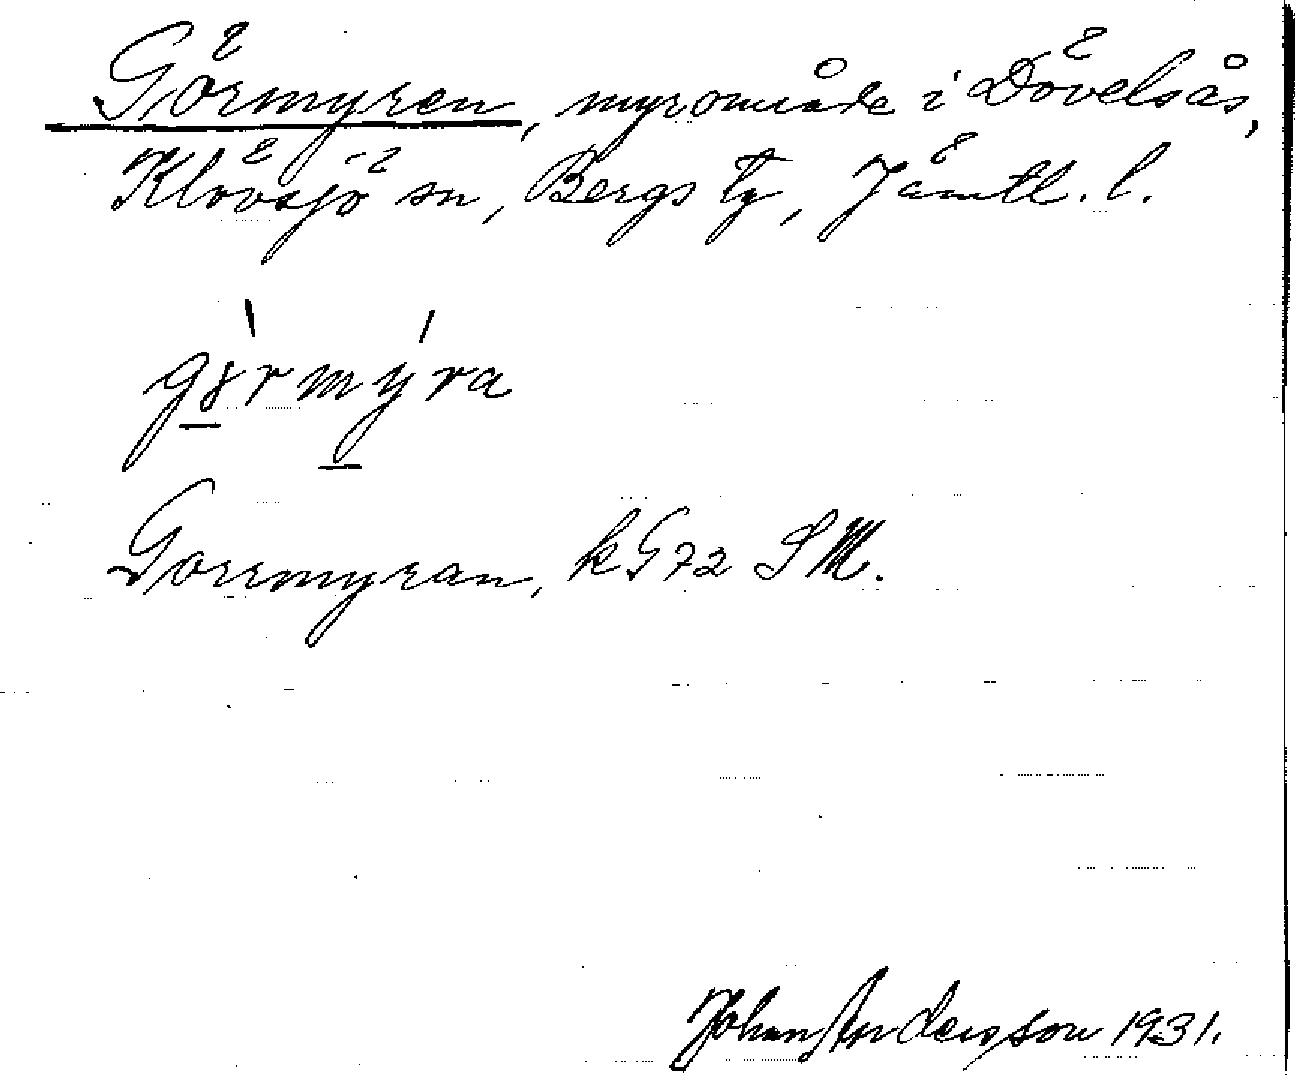 Görmyren, myrområde i Dövelsås,
Klövsjö sn, Bergs tg, Jämtl. l.
gɤ̀rmýra
Gorrmyran, k G 72 SM.
Johan Andersson 1931.